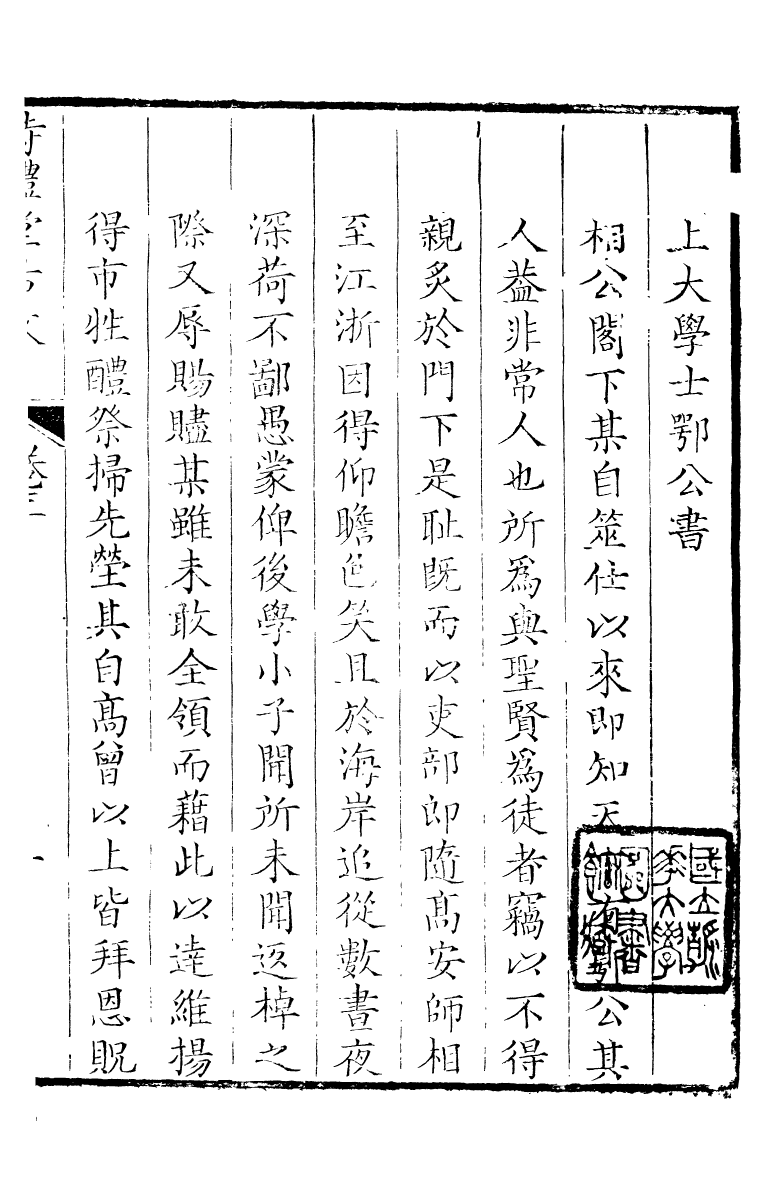 上大學士鄂公書
相公閣下某自筮仕以來即知天公其
人葢非常人也所爲與聖賢爲徒者竊以不得
親炙於門下是耻既而以吏部郎隨髙安師相
至江浙因得仰瞻色笑且於海岸追從數晝夜
深荷不鄙愚蒙俾後學小子開所未聞返棹之
際又辱賜贐某雖未敢全領而藉此以達維揚
得市牲醴祭掃先塋其自髙曾以上皆拜恩貺
禮堂古文
卷三
一
國立
大學